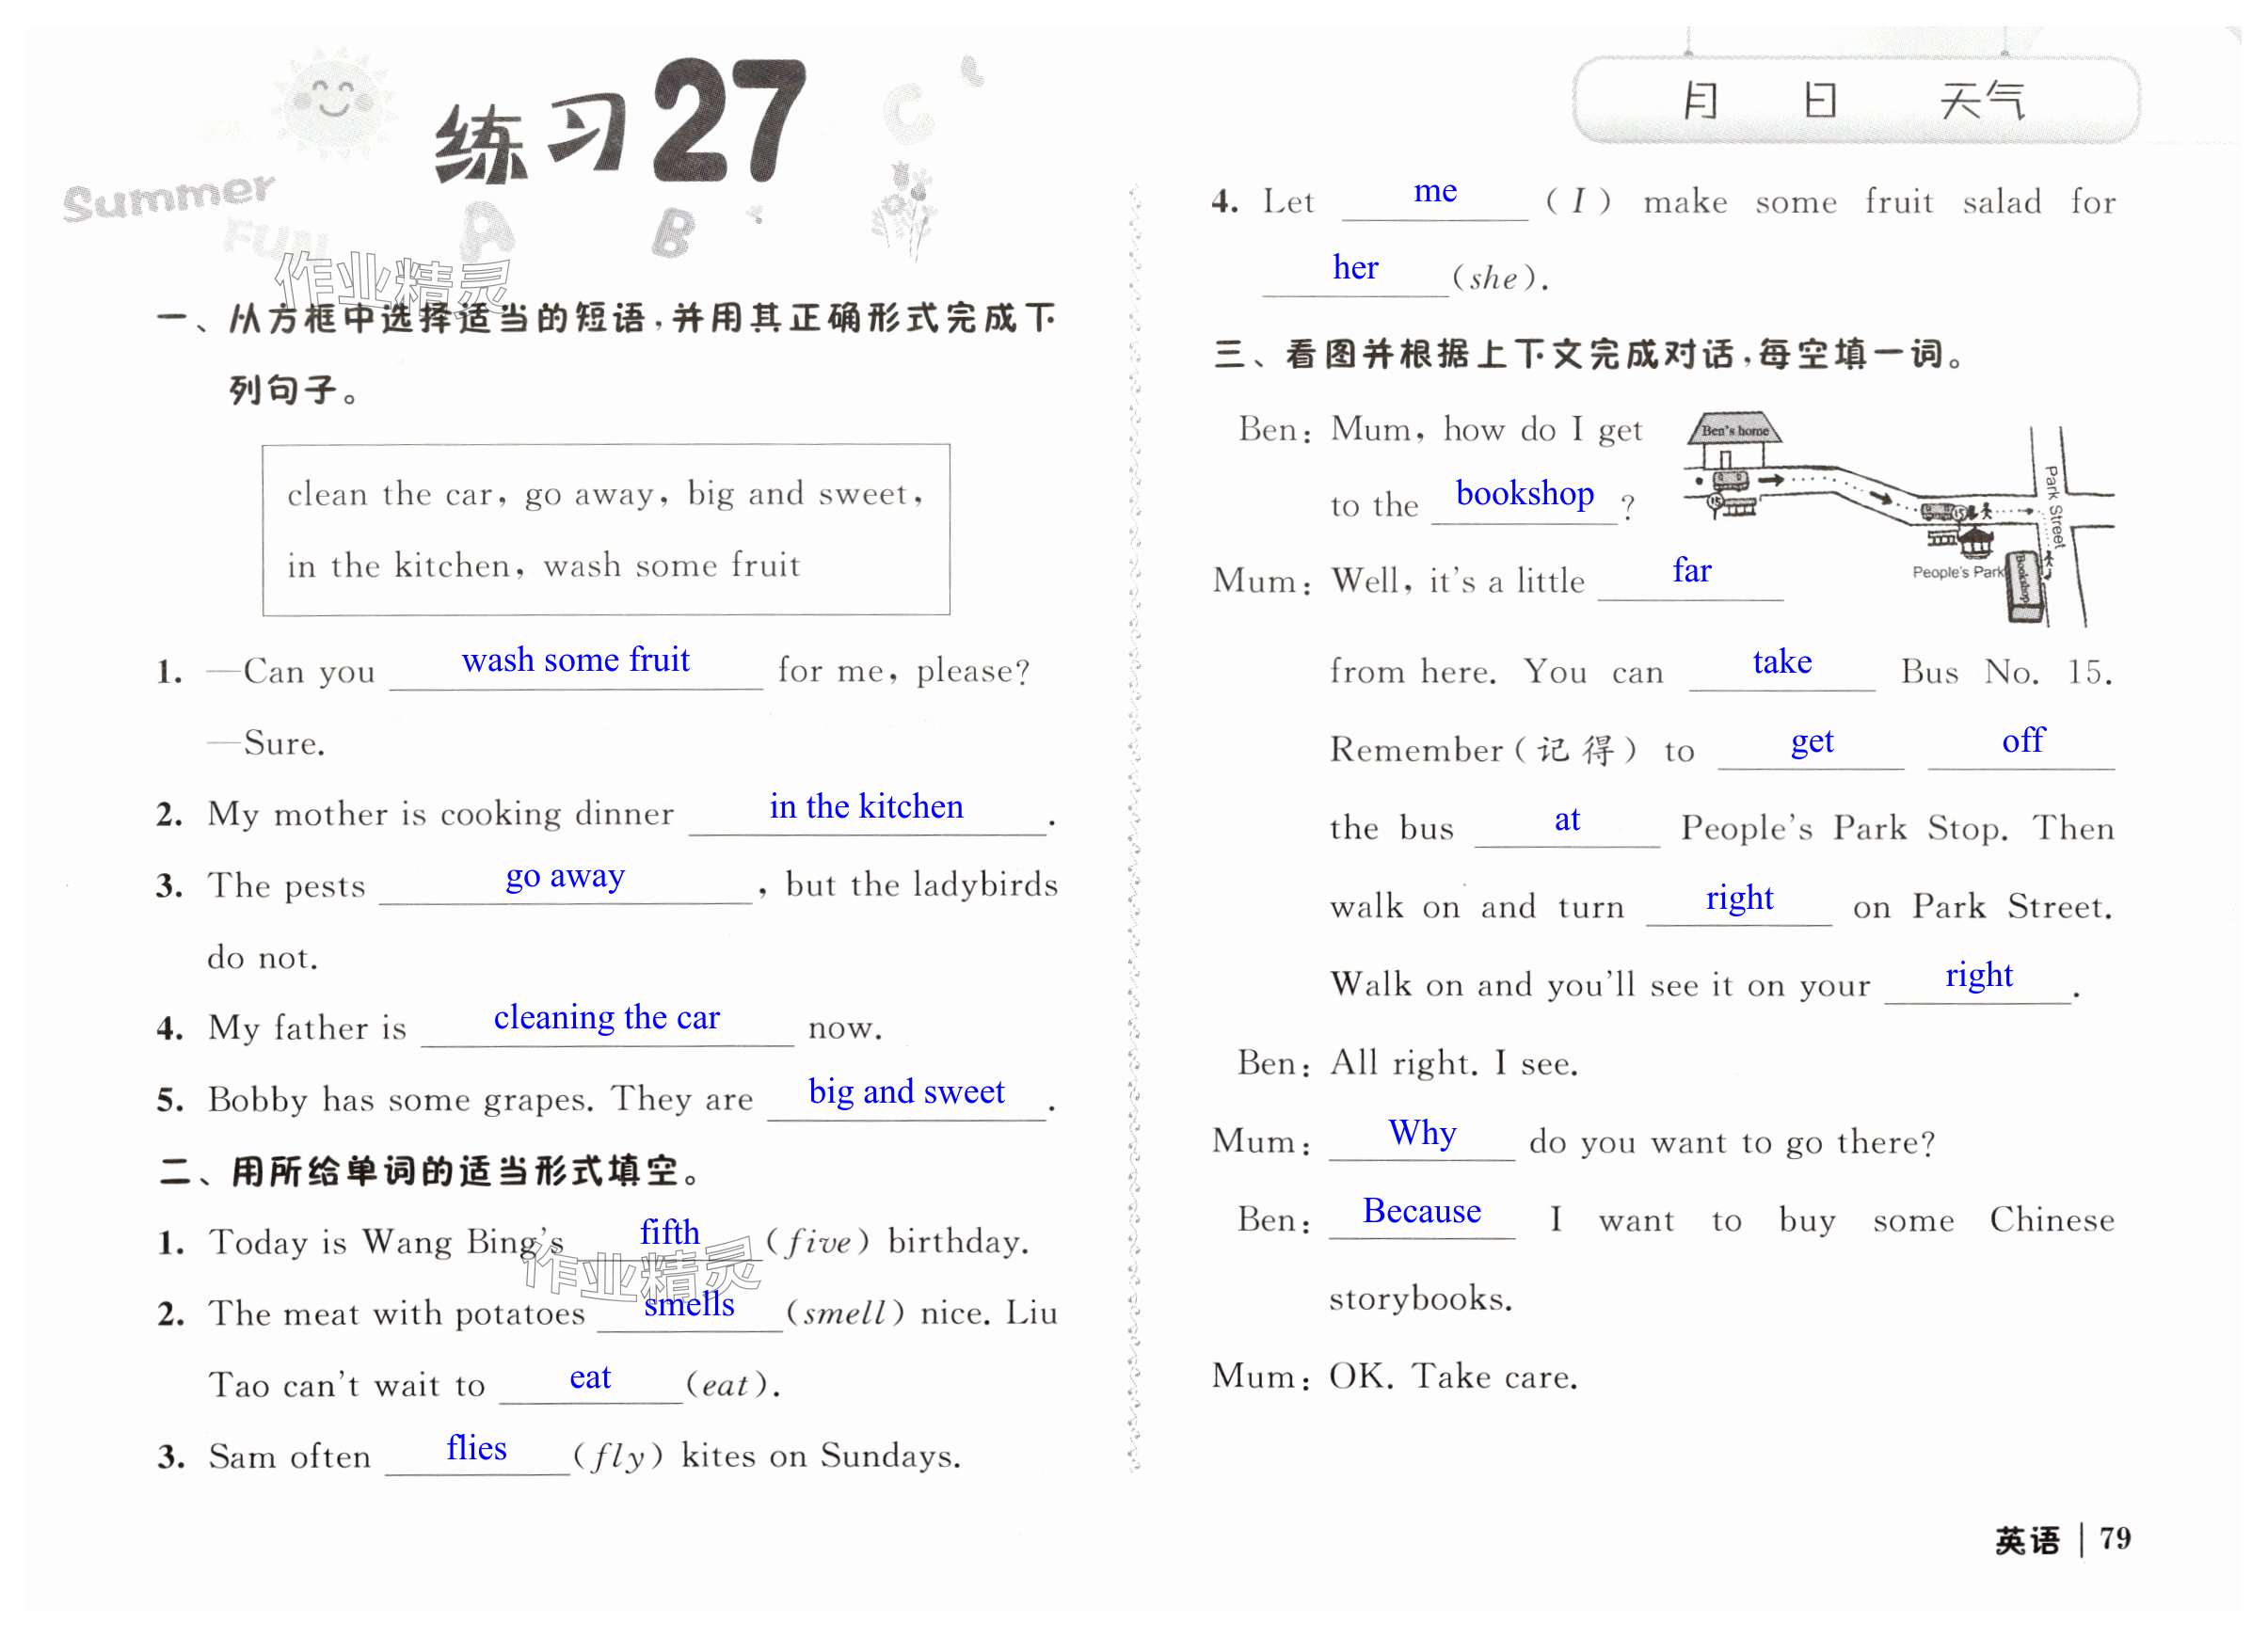 练习27
Summer
FUN
A B C
作业精灵
一、从方框中选择适当的短语,并用其正确形式完成下
列句子。
clean the car, go away, big and sweet,
in the kitchen, wash some fruit
1. —Can you wash some fruit for me, please?
—Sure.
2. My mother is cooking dinner in the kitchen.
3. The pests go away, but the ladybirds
do not.
4. My father is cleaning the car now.
5. Bobby has some grapes. They are big and sweet.
二、用所给单词的适当形式填空。
1. Today is Wang Bing's fifth (five) birthday.
作业精灵
2. The meat with potatoes smells (smell) nice. Liu
Tao can't wait to eat (eat).
3. Sam often flies (fly) kites on Sundays.
月 日 天气
4. Let me (I) make some fruit salad for
her (she).
三、看图并根据上下文完成对话,每空填一词。
Ben: Mum, how do I get
to the bookshop ?
Mum: Well, it's a little far
Ben's home
15
15
Park Street
People's Park
Bookshop
from here. You can take Bus No. 15.
Remember(记得) to get off
the bus at People's Park Stop. Then
walk on and turn right on Park Street.
Walk on and you'll see it on your right.
Ben: All right. I see.
Mum: Why do you want to go there?
Ben: Because I want to buy some Chinese
storybooks.
Mum: OK. Take care.
英语 | 79